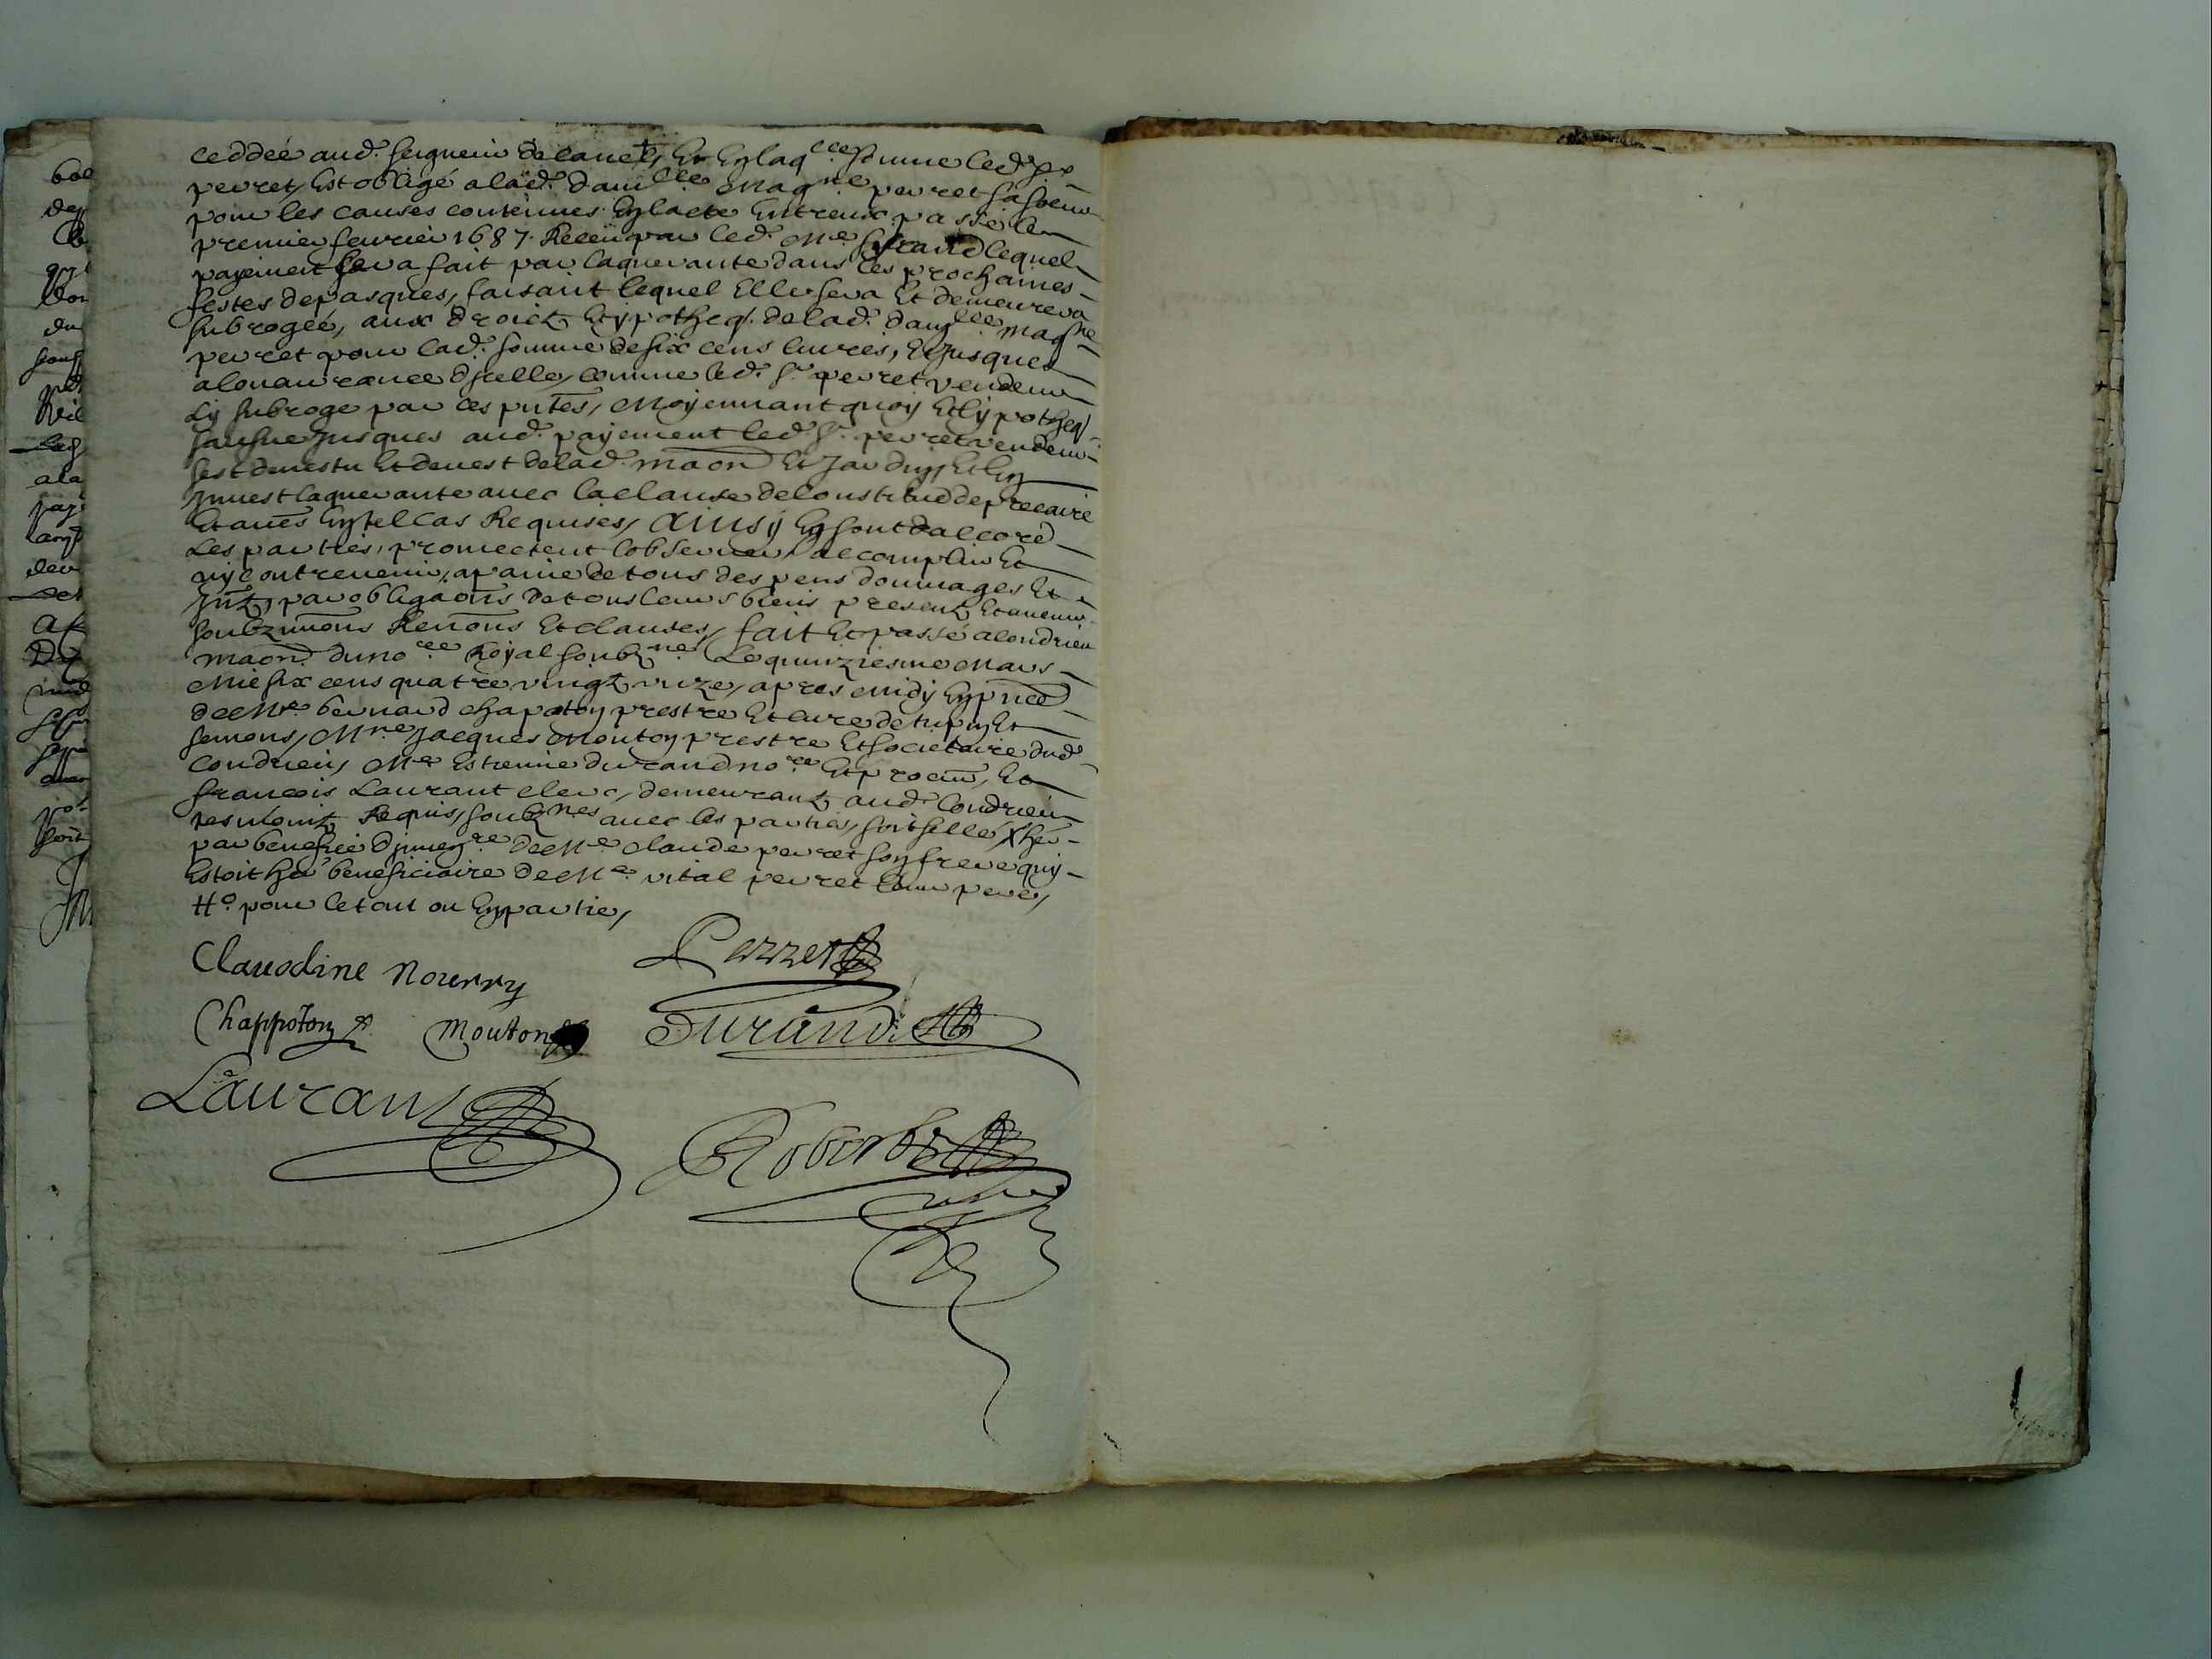 ceddée aud. seigneur de lanet, Et En laq.lle somme led. sr
perret, Est obligé a lad. dam.lle Mag.ne perret sa soeur
pour les causes contenues En lacte Entreux passé le
premier feurier 1687. Receu par led. Me durand lequel
payement sera fait par laquerante dans les prochaines
festes de pasques, faisant lequel Elle sera Et demeurera
subrogée, aux droictz Et ypotheq. de lad. dam.lle mag.ne
perret pour lad. somme de six cens liures, Et jusques
a conaurance dycelle, comme led. sr perret vendeur
Ly subroge par ces pntes, Moyennant quoy Et lypotheq.
saufue jusques aud. payement led. sr perret vendeur
sest deuestu Et deuest de lad. maon Et jardin, Et En
jnuest laquerante auec la clause de constitud de precaire
Et autres En tel cas Requises, Ainsy En sont daccord
Les parties, promectent lobseruer, accomplir Et
ny contreuenir, a paine de tous despens dommages Et
jntz, par obligaons de tous leurs biens presentz Et auenir
soubzmions Renons Et clauses, fait Et passé a condrieu
maon du no.re Royal soubz.né Le quinziesme Mars
Mil six cens quatre vingtz unze, apres midy En pnce
de Mre bernard chapoton prestre Et curé de tupin Et
semons, Mre Jacques Mouton prestre Et societaire dud.
Condrieu, Me Estienne durand no.re Et procur, Et
françois Laurant clerc, demeurantz aud. Condrieu
tesmointz Requis, soubz.nés auec les parties, soit sellé X her.
par benefice djnuen.re de Me Claude perret son frere quy
Estoit her beneficiaire de Me vital perret leur pere,
# o pour le tout ou En partie,
Claudine Nourry
Perret
Chappoton
Mouton
Durand
Laurant
Robert